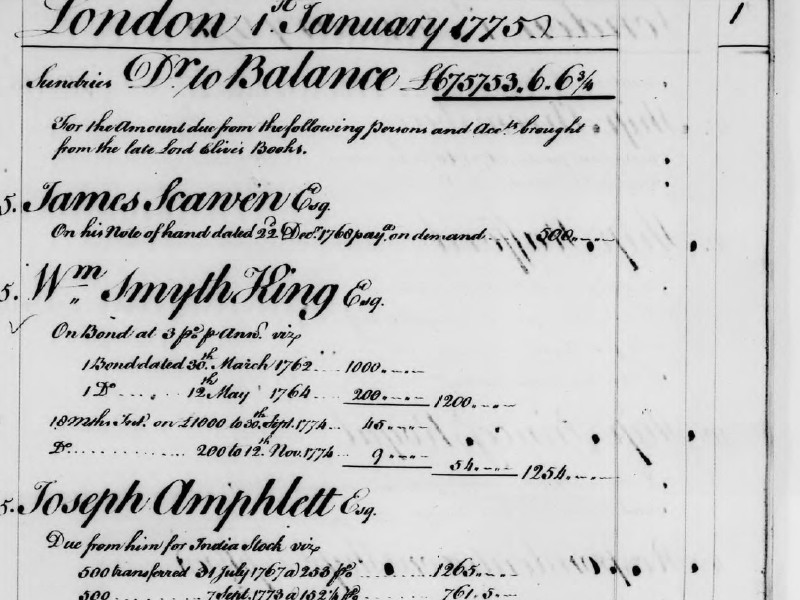 London 1st January 1775
1
Sundries Dr to Balance £675753.6.6¾
For the Amount due from the following persons and Accts brought
from the late Lord Clive's Books.
5. James Scawen Esq.
On his Note of hand dated 22d Decr. 1768 paye. on demand 500
5. Wm Smyth King Esq.
On Bond at 3 pr. p Ann. viz
1 Bond dated 30th March 1762 1000
1 Do 12th May 1764 200 1200
18 mths Int. on £1000 to 30th Sept. 1774 45
Do 200 to 12th Nov. 1774 9 54 1254
5. Joseph Amphlett Esq.
Due from him for India Stock viz
500 transferred 31 July 1767 a 253 pr. 1265
500 7 Sept. 1773 a 152¼ pr. 761.5